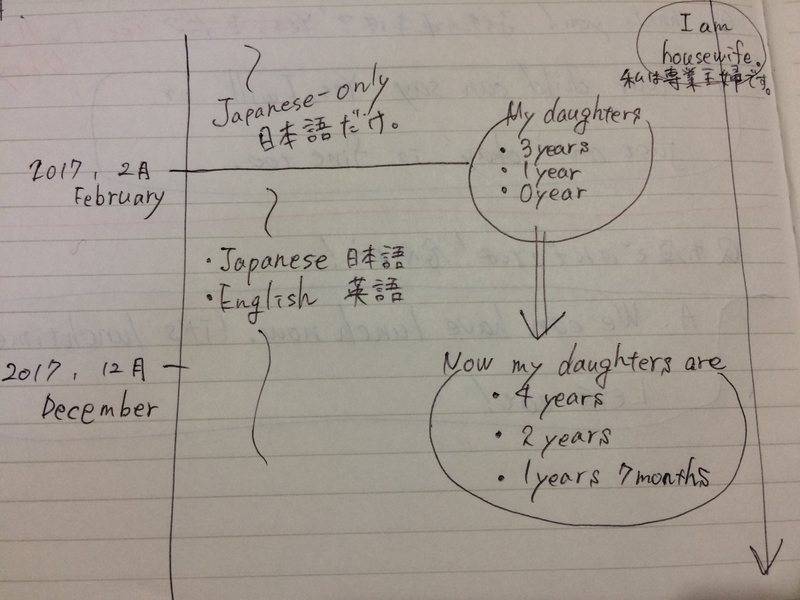 I am
housewife.
私は専業主婦です。
Japanese-only
日本語だけ。
My daughters
・3years
・1year
・0year
2017, 2月
February
・Japanese 日本語
・English 英語
2017, 12月
December
Now my daughters are
・4 years
・2 years
・1years 7months